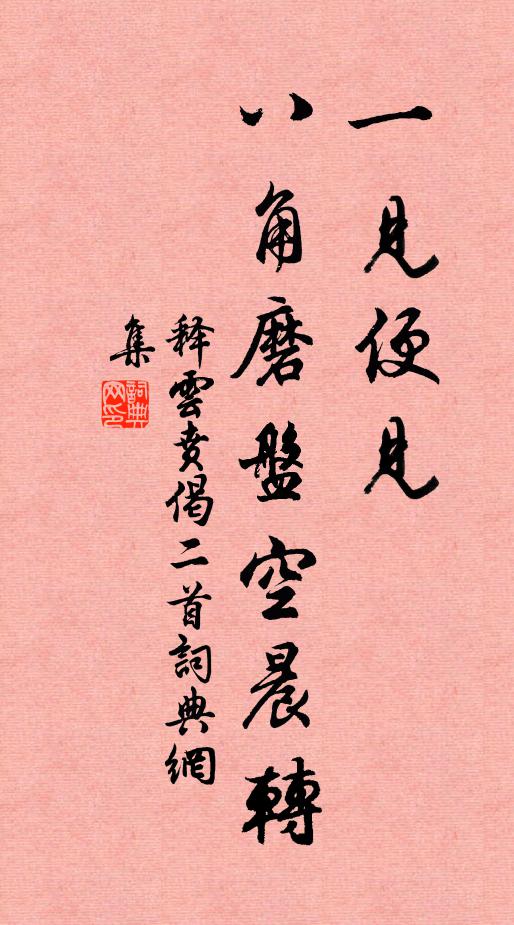 一見便見
八角磨盤空晨轉
释雲賁偈二首詞典網
集
詞典網印